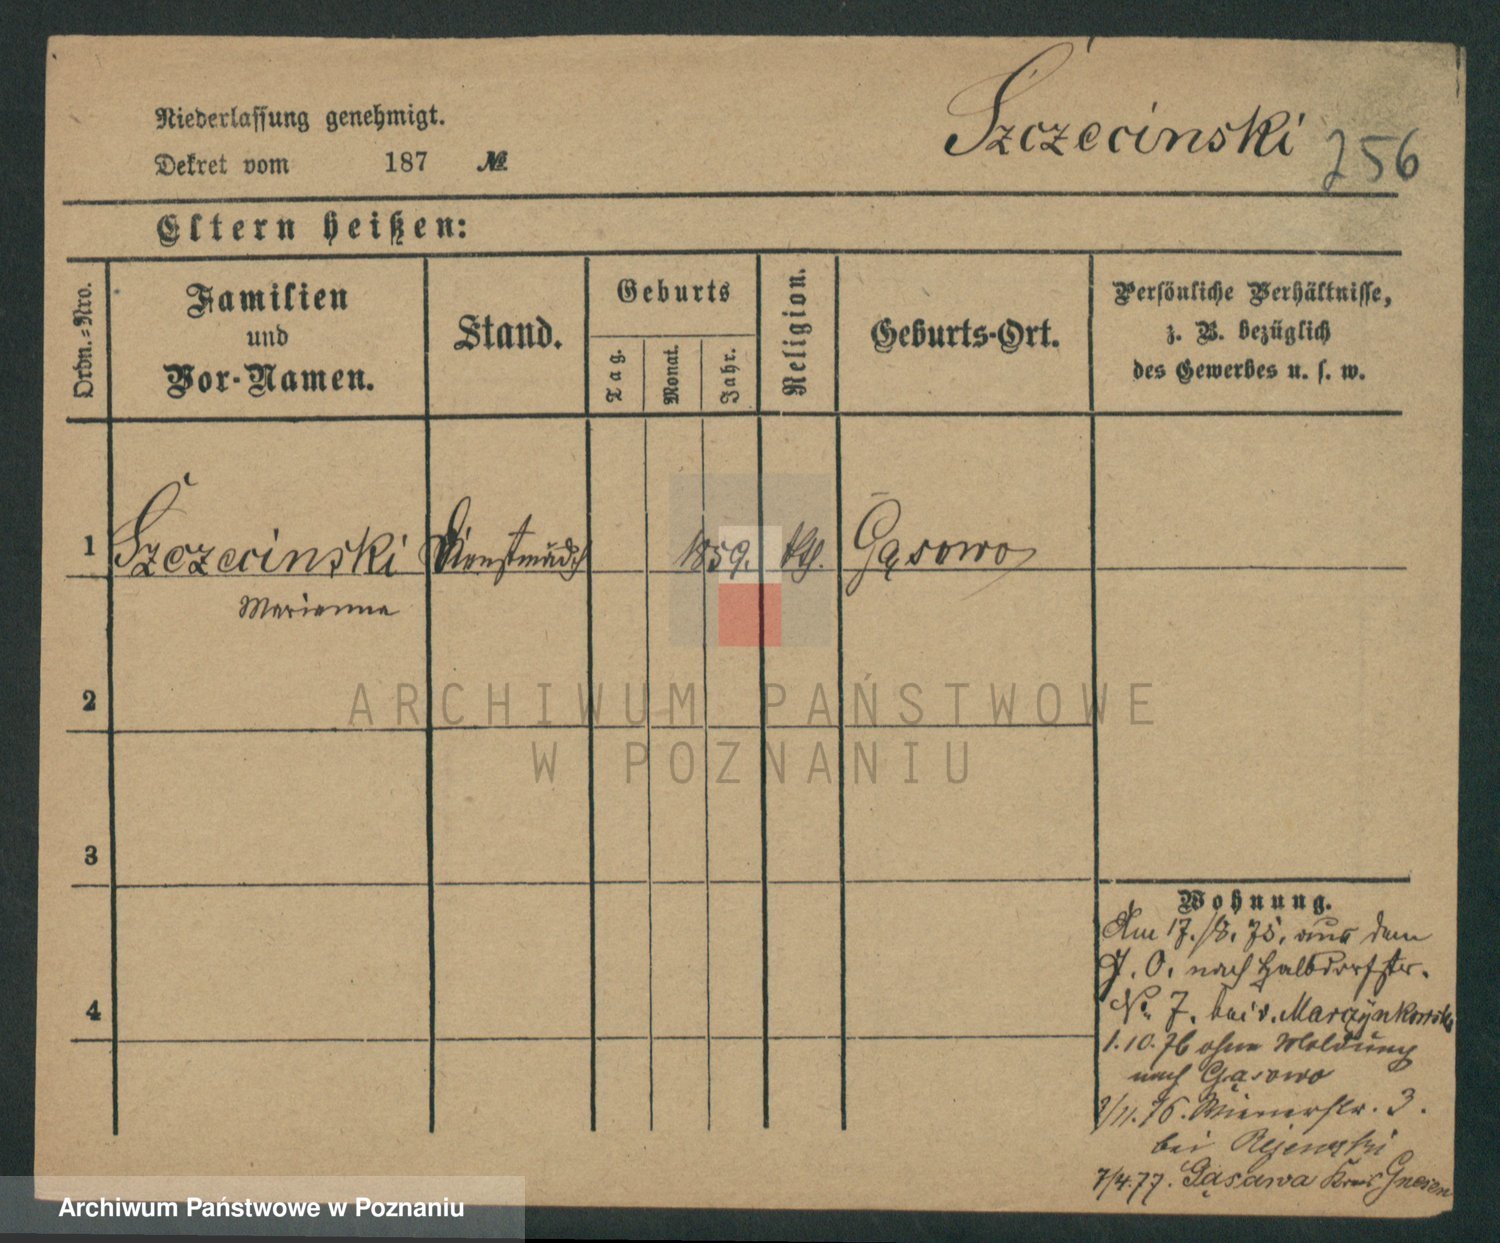 Szczecinski 256
Niederlassung genehmigt.
Dekret vom 187 №
Eltern heißen:
Ordn.=Nro.
Familien
und
Vor-Namen.
Stand.
Geburts
Tag.
Monat.
Jahr.
Religion.
Geburts-Ort.
Persönliche Verhältnisse,
z. B. bezüglich
des Gewerbes u. s. w.
1 Szczecinski Dienstmädch 1859. kth. Gąsowo
Marianna
2
3
4
Wohnung.
Am 17./8. 75. aus dem
J. O. nach Halbdorfstr.
No 7. bei v. Marzynkowski
1.10.76 ohne Meldung
nach Gąsowo
2/11.76. Wienerstr. 3.
bei Rejewski
7/4.77. Gąsawa Kreis Gnesen
ARCHIWUM PAŃSTWOWE
W POZNANIU
Archiwum Państwowe w Poznaniu